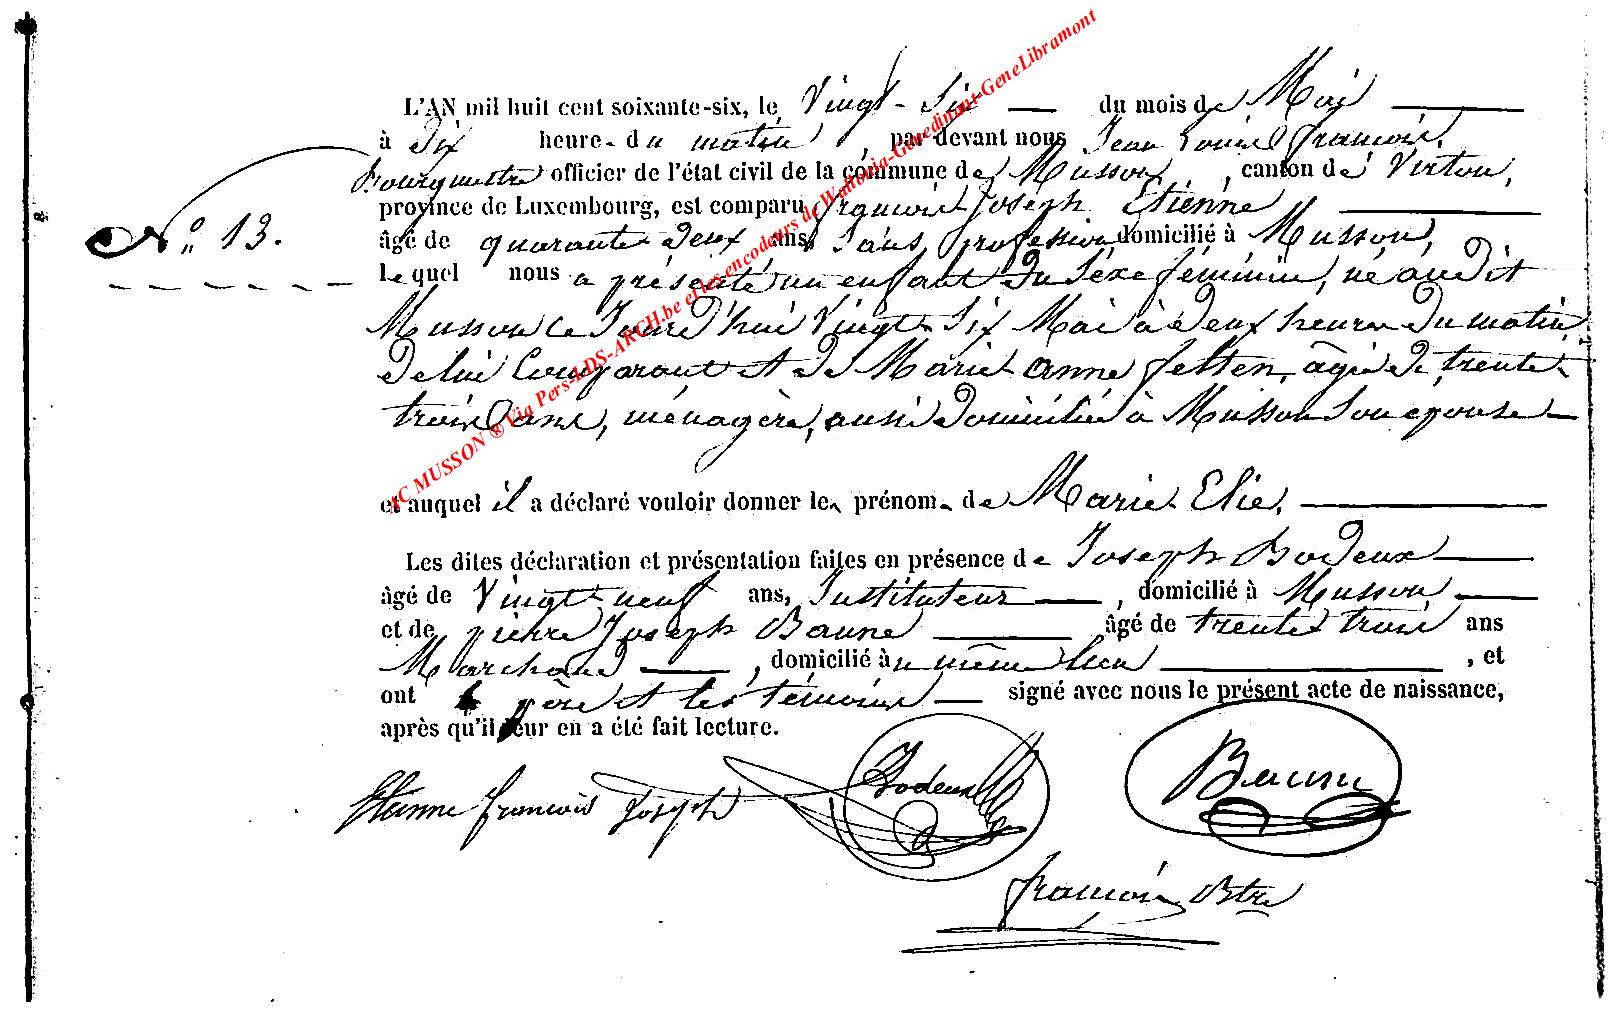 L'AN mil huit cent soixante-six, le Vingt-Six du mois de Mai
à Dix heure du matin, par devant nous Jean Louis François,
Bourgmestre officier de l'état civil de la commune de Musson, canton de Virton,
province de Luxembourg, est comparu françois Joseph Etienne
N° 13. âgé de quarante deux ans, Sans profession domicilié à Musson,
lequel nous a présenté un enfant du Séxe féminin, né audit
Musson ce Jourd'hui Vingt-Six Mai à deux heures du matin
de lui Comparant et de Marie Anne felten, agée de trente-
trois ans, ménagère, aussi domiciliée à Musson Son epouse
et auquel il a déclaré vouloir donner le prénom de Marie Elie.
Les dites déclaration et présentation faites en présence de Joseph Bodeux
âgé de Vingt-neuf ans, Instituteur, domicilié à Musson
et de pierre Joseph Baune âgé de trente trois ans
Marchand, domicilié à u même lieu, et
ont le père et les témoins signé avec nous le présent acte de naissance,
après qu'il leur en a été fait lecture.
Etienne françois Joseph Bodeux Baune
françois Btre
AC MUSSON ® Via Pers-LDS-ARCH.be et les encodeurs de Wallonia-Genedinant-GeneLibramont